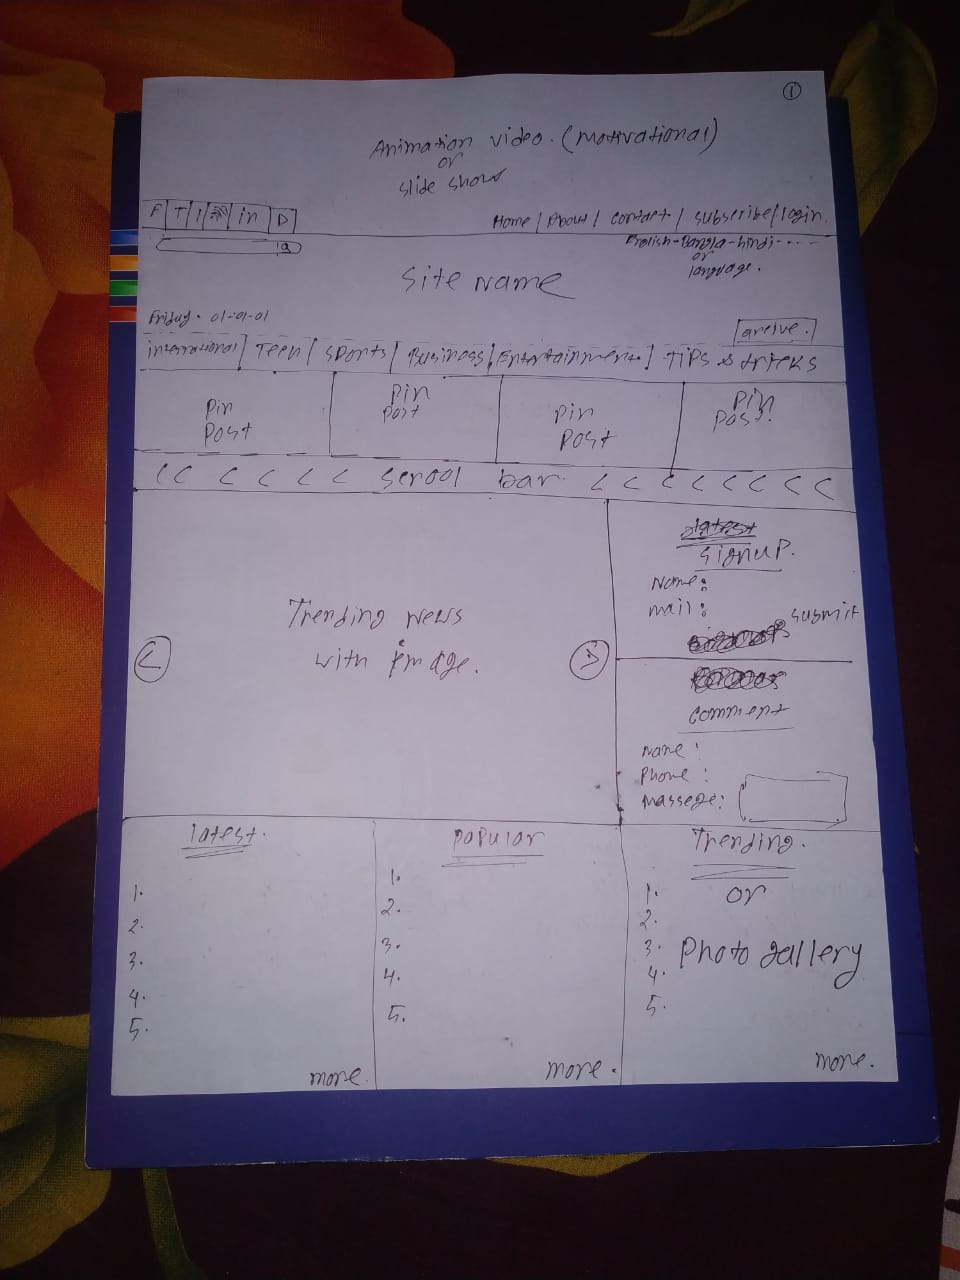 1
Animation video. (motivational)
or
slide show
F T I in D
Home / About / contact / subscribe/login
English-Bangla-hindi-....
or
language.
Site Name
Friday. 01-01-01
arcive.
international / Teen / sports / Business / Entertainment / Tips & tricks
Pin
Post
Pin
Post
Pin
Post
Pin
Post.
<< < < < < scrool bar. < < < < < < < <
signup.
Name:
mail:
submit
Trending News
with image.
<
>
comment
Name:
Phone:
massege:
latest.
1.
2.
3.
4.
5.
more.
Popular
1.
2.
3.
4.
5.
more.
Trending.
or
Photo gallery
1.
2.
3.
4.
5.
more.